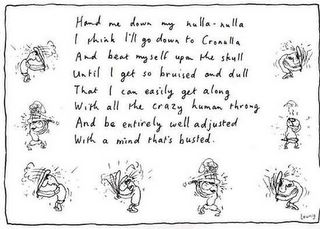 Hand me down my nulla-nulla
I think I'll go down to Cronulla
And beat myself upon the skull
Until I get so bruised and dull
That I can easily get along
With all the crazy human throng
And be entirely well adjusted
With a mind that's busted.
Leunig